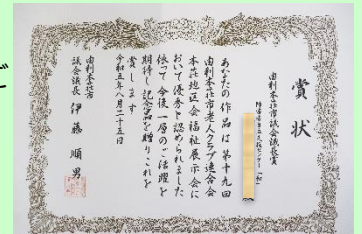 賞状
由利本荘市議会議長賞
障害者自立支援センター「和」
あなたの作品は第十九回
由利本荘市老人クラブ連合会
本荘地区会福祉展示会に
おいて優秀と認められました
依って今後一層のご活躍を
期待し記念品を贈りこれを
賞します
令和五年八月二十五日
由利本荘市
議会議長 伊藤順男